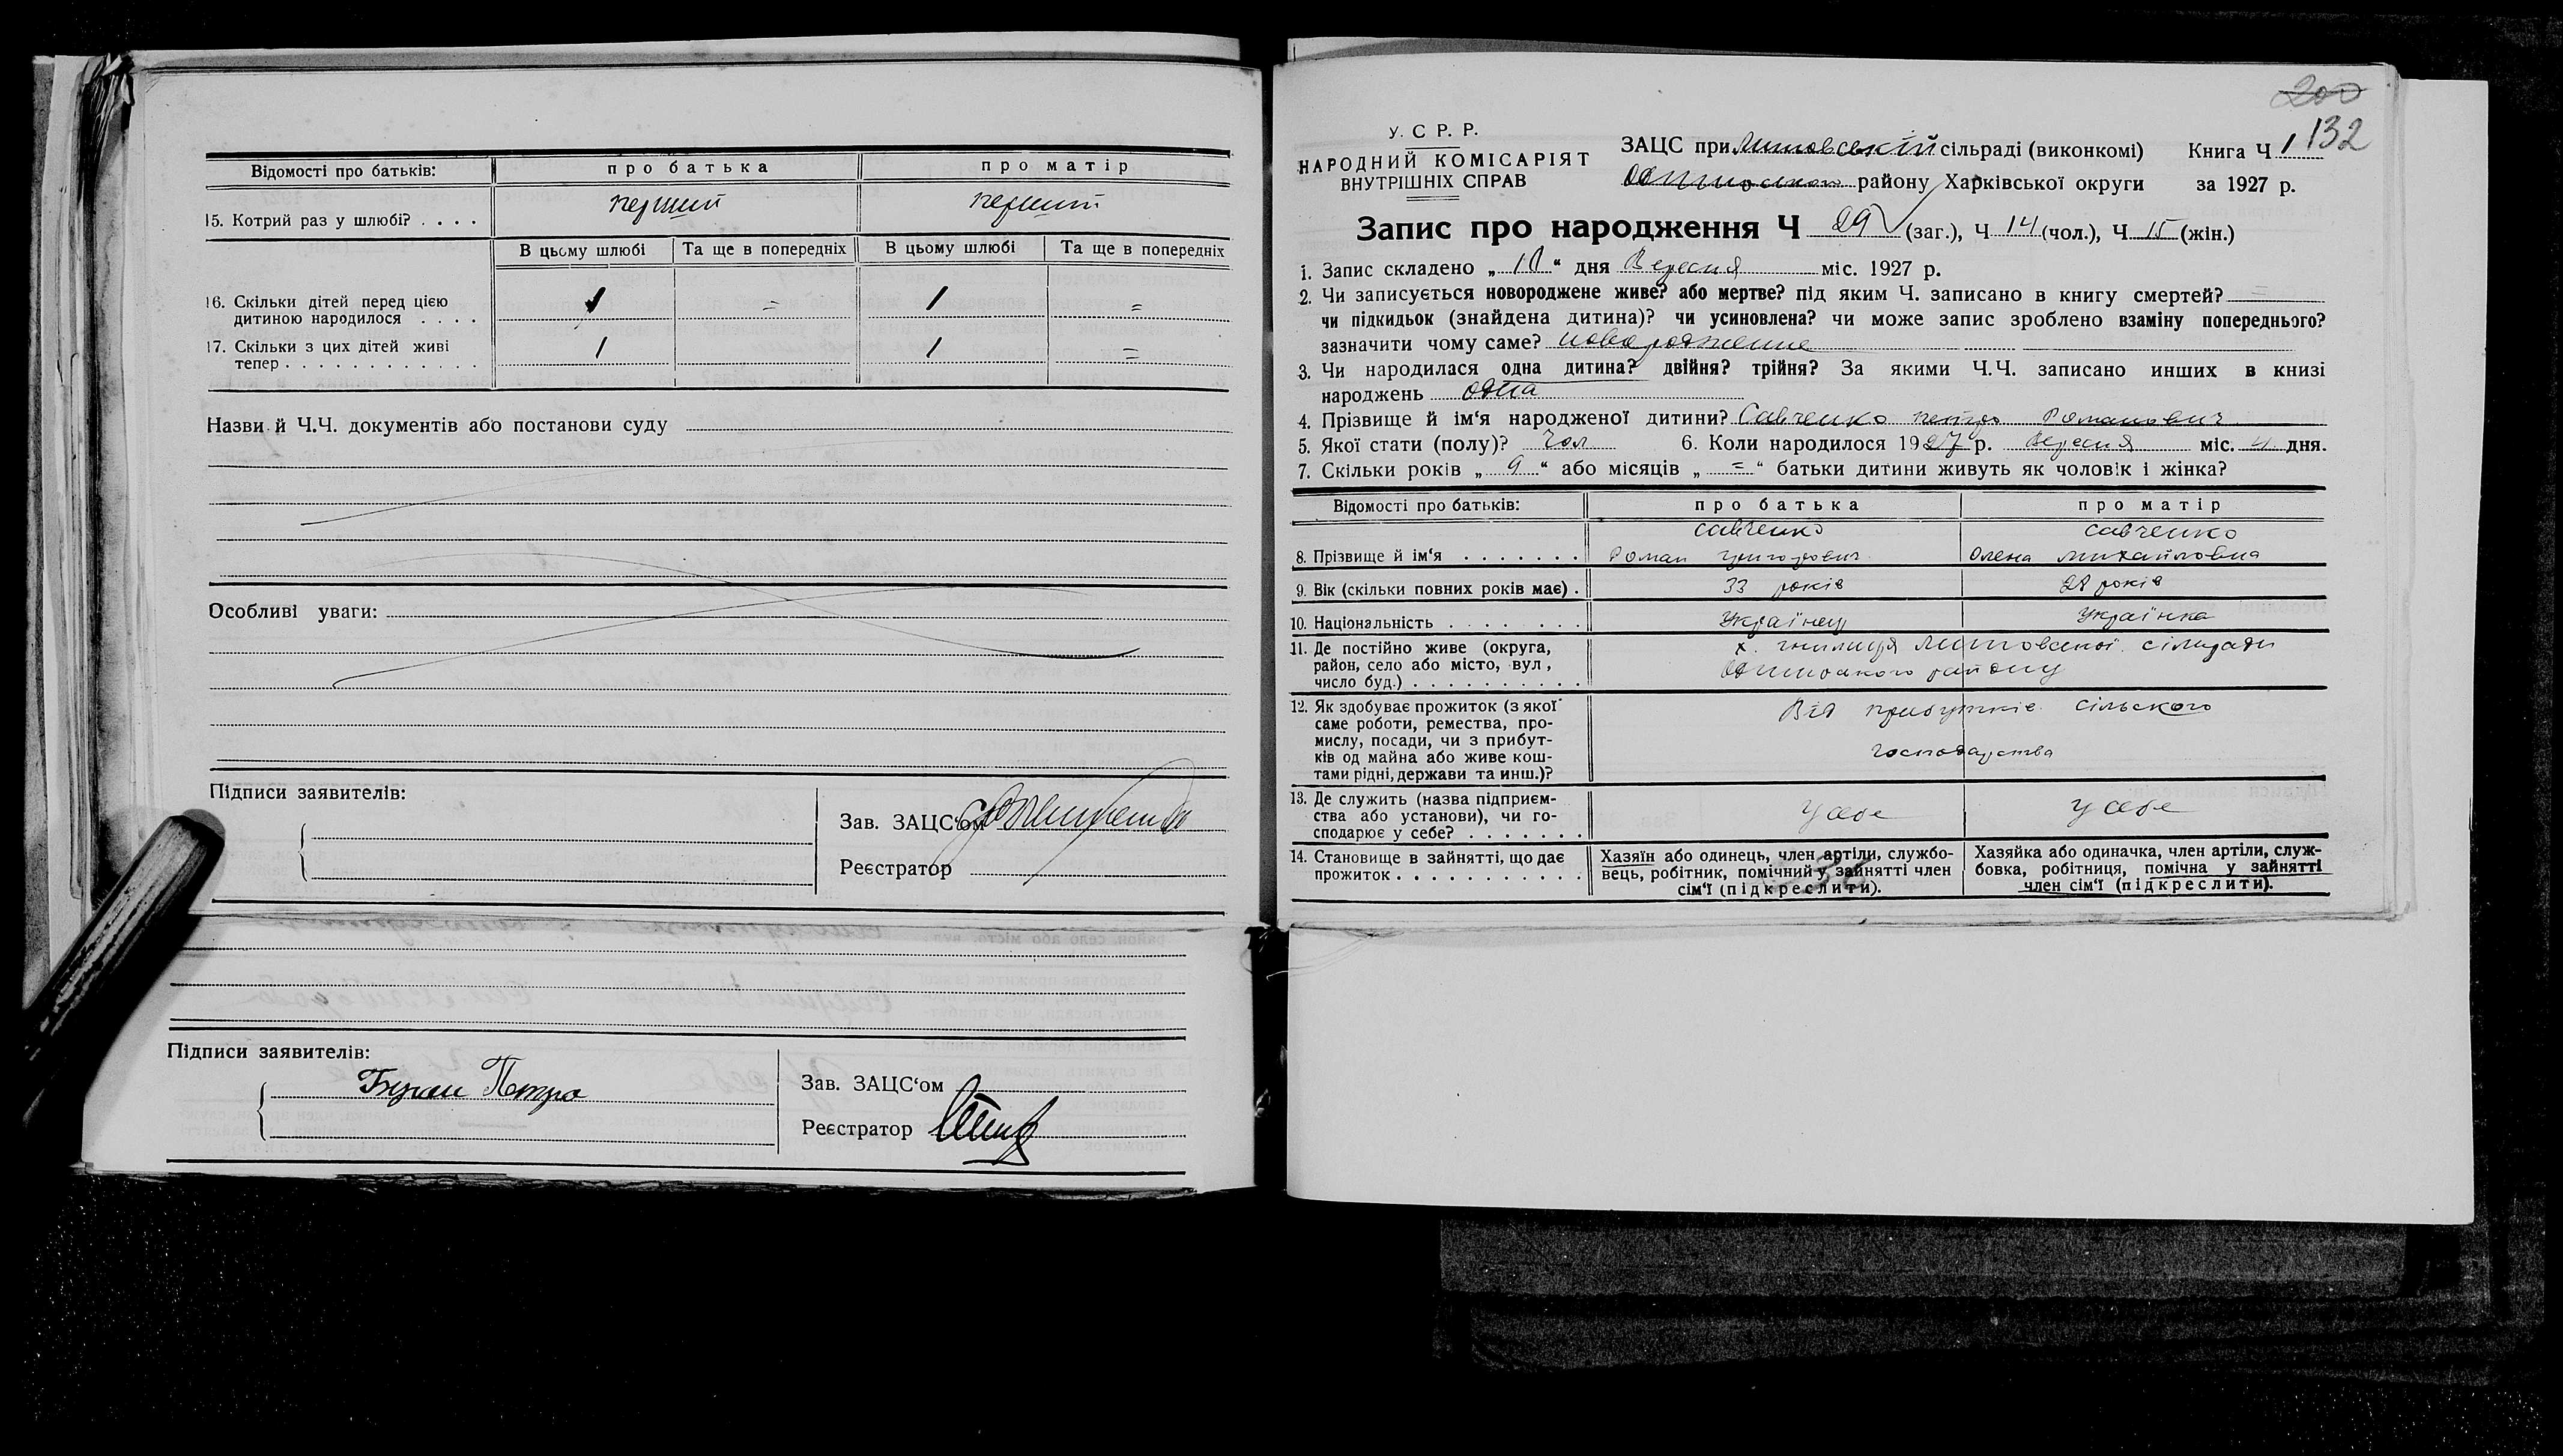 Відомості про батьків: про батька про матір
15. Котрий раз у шлюбі? . . . . перший перший
В цьому шлюбі Та ще в попередніх В цьому шлюбі Та ще в попередніх
16. Скільки дітей перед цією
дитиною народилося . . . . 1 = 1 =
17. Скільки з цих дітей живі
тепер . . . . . . . . . . . . 1 1 =
Назви й Ч.Ч. документів або постанови суду
Особливі уваги:
Підписи заявителів:
Зав. ЗАЦС'ом
Реєстратор
Підписи заявителів:
Петро
Зав. ЗАЦС'ом
Реєстратор
200
132
У. С Р. Р.
НАРОДНИЙ КОМІСАРІЯТ
ВНУТРІШНІХ СПРАВ
ЗАЦС при сільраді (виконкомі) Книга Ч 1
району Харківської округи за 1927 р.
Запис про народження Ч 29 (заг.), Ч 14 (чол.), Ч 15 (жін.)
1. Запис складено „ “ дня Вересня міс. 1927 р.
2. Чи записується новороджене живе? або мертве? під яким Ч. записано в книгу смертей? =
чи підкидьок (знайдена дитина)? чи усиновлена? чи може запис зроблено взаміну попереднього?
зазначити чому саме? новородженне
3. Чи народилася одна дитина? двійня? трійня? За якими Ч.Ч. записано инших в книзі
народжень одна
4. Прізвище й ім'я народженої дитини? Савченко петро Романович
5. Якої стати (полу)? Чол 6. Коли народилося 1927 р. Вересня міс. дня.
7. Скільки років „ 9 “ або місяців „ = “ батьки дитини живуть як чоловік і жінка?
Відомості про батьків: про батька про матір
савченко савченко
8. Прізвище й ім'я . . . . . . . Роман григорович Олена михайловна
9. Вік (скільки повних років має) . 33 років 28 років
10. Національність . . . . . . . . Українец Українка
11. Де постійно живе (округа, х. сільради
район, село або місто, вул, району
число буд.) . . . . . . . . . .
12. Як здобуває прожиток (з якої Від прибутків сільского
саме роботи, ремества, про-
мислу, посади, чи з прибут- господарства
ків од майна або живе кош-
тами рідні, держави та инш.)?
13. Де служить (назва підприєм-
ства або установи), чи го- у себе у себе
сподарює у себе? . . . . . . .
14. Становище в зайнятті, що дає Хазяїн або одинець, член артіли, службо- Хазяйка або одиначка, член артіли, служ-
прожиток . . . . . . . . . . . вець, робітник, помічний у зайнятті член бовка, робітниця, помічна у зайнятті
сім'ї (підкреслити). член сім'ї (підкреслити).